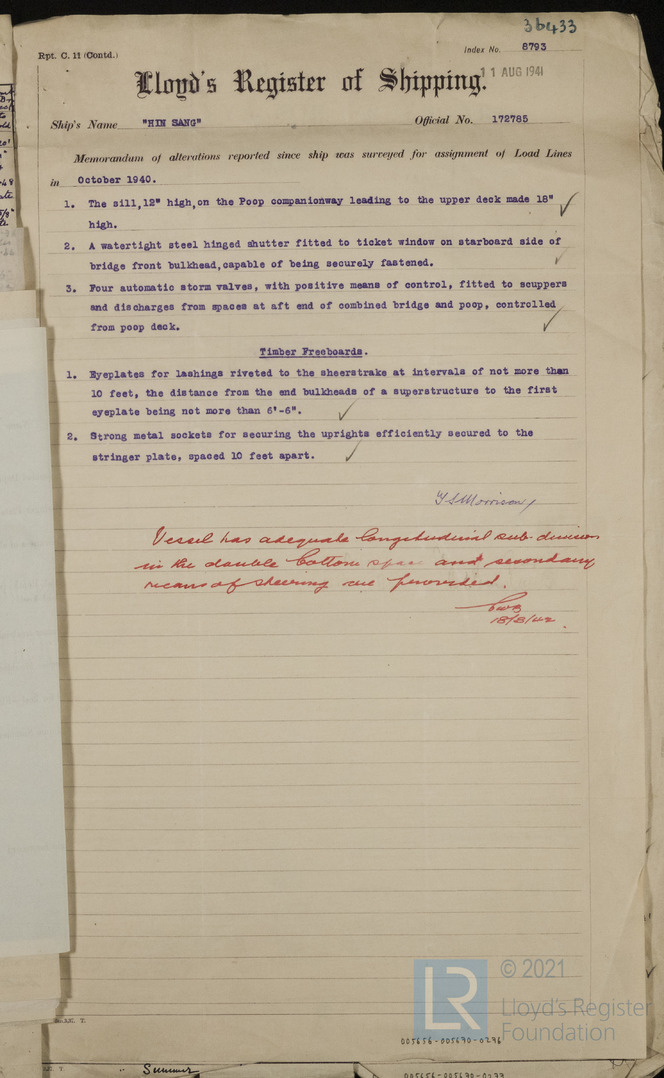 36433
Rpt. C. 11 (Contd.)
Index No. 8793
Lloyd's Register of Shipping.
11 AUG 1941
Ship's Name "HIN SANG" Official No. 172785
Memorandum of alterations reported since ship was surveyed for assignment of Load Lines
in October 1940.
1. The sill, 12" high, on the Poop companionway leading to the upper deck made 18"
high.
2. A watertight steel hinged shutter fitted to ticket window on starboard side of
bridge front bulkhead, capable of being securely fastened.
3. Four automatic storm valves, with positive means of control, fitted to scuppers
and discharges from spaces at aft end of combined bridge and poop, controlled
from poop deck.
Timber Freeboards.
1. Eyeplates for lashings riveted to the sheerstrake at intervals of not more than
10 feet, the distance from the end bulkheads of a superstructure to the first
eyeplate being not more than 6'-6".
2. Strong metal sockets for securing the uprights efficiently secured to the
stringer plate, spaced 10 feet apart.
Morrison
Vessel has adequate longitudinal sub-division
in the double bottom space and secondary
means of steering are provided.
18/8/42
© 2021
LR
Lloyd's Register
Foundation
005656-005690-0236
Summer
005656-005690-0233